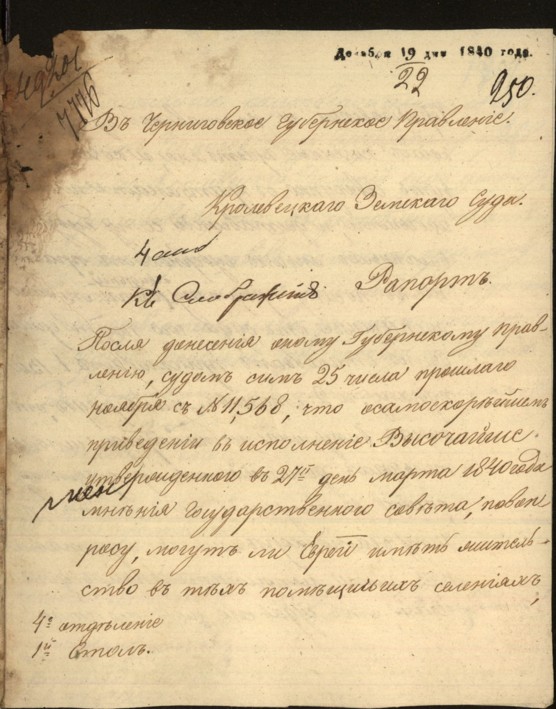 Декабря 19 дня 1840 года.
22
250.
7776
Въ Черниговское Губернское Правленіе.
Кролевецкаго Земскаго Суда.
Рапортъ.
Послѣ донесенія оному Губернскому Прав-
ленію, судомъ симъ 25 числа прошлаго
ноября съ №11,568, что осамоскорѣйшемъ
приведеніи въ исполненіе Высочайше.
утвержденного въ 27й день марта 1840 года
мнѣнія Государственнаго совѣта, повоп
росу, могутъ ли Евреи имѣть житель-
ство въ тѣхъ помѣщичьихъ селеніяхъ,
4е отдѣленіе
1й Столъ.